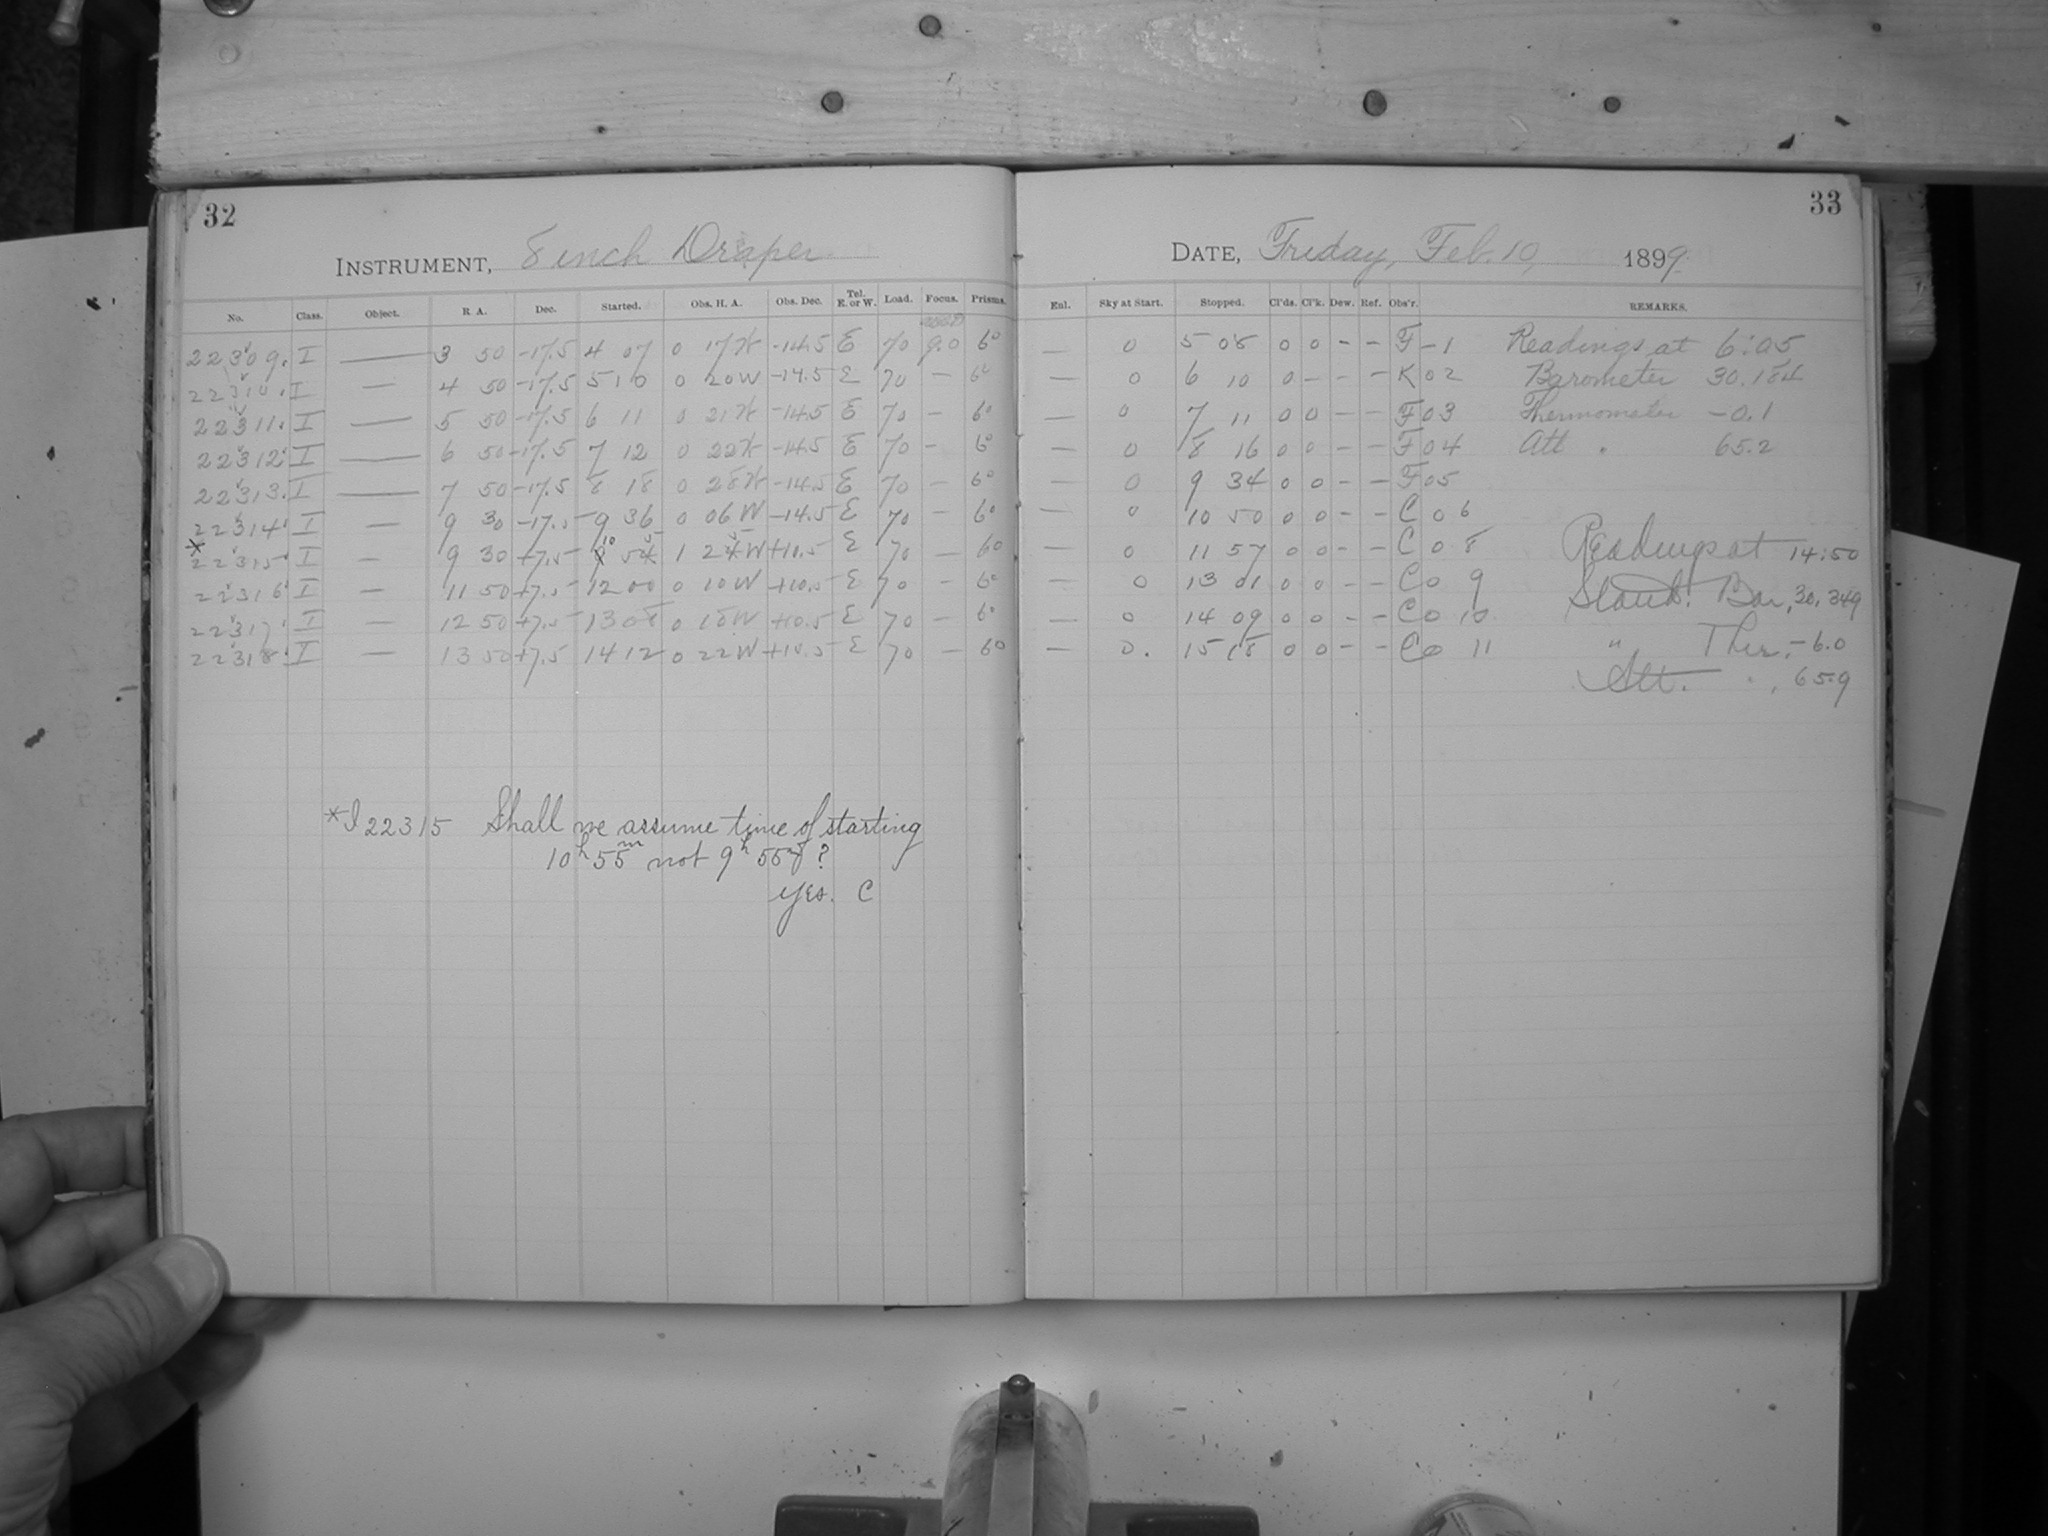 32
INSTRUMENT, 8 inch Draper
No. Class. Object. R. A. Dec. Started. Obs. H. A. Obs. Dec. Tel. E. or W. Load. Focus. Prisms.
22309. I — 3 50 -17.5 4 07 0 17W -14.5 E 70 9.0 60
22310. I — 4 50 -17.5 5 10 0 20W -14.5 E 70 — 60
22311. I — 5 50 -17.5 6 11 0 21W -14.5 E 70 — 60
22312. I — 6 50 -17.5 7 12 0 22W -14.5 E 70 — 60
22313. I — 7 50 -17.5 8 18 0 28W -14.5 E 70 — 60
22314. I — 9 30 -17.5 9 36 0 06W -14.5 E 70 — 60
*22315. I — 9 30 +7.5 10 55 1 25W +10.5 E 70 — 60
22316. I — 11 50 +7.5 12 00 0 10W +10.5 E 70 — 60
22317. I — 12 50 +7.5 13 08 0 18W +10.5 E 70 — 60
22318. I — 13 50 +7.5 14 12 0 22W +10.5 E 70 — 60
*I 22315 Shall we assume time of starting
10h 55m not 9h 55m?
yes. C
33
DATE, Friday, Feb. 10, 1899.
Enl. Sky at Start. Stopped. Cl'ds. Cl'k. Dew. Ref. Obs'r. REMARKS.
— 0 5 08 0 0 - - F -1 Readings at 6:05
— 0 6 10 0 - - - K 02 Barometer 30.184
— 0 7 11 0 0 - - F 03 Thermometer -0.1
— 0 8 16 0 0 - - F 04 Att. 65.2
— 0 9 34 0 0 - - F 05
— 0 10 50 0 0 - - C 06
— 0 11 57 0 0 - - C 08 Readings at 14:50
— 0 13 01 0 0 - - C 0 9 Stand. Bar, 30.349
— 0 14 09 0 0 - - C 0 10
— 0. 15 18 0 0 - - C 0 11 " Ther, -6.0
Att. " , 65.9